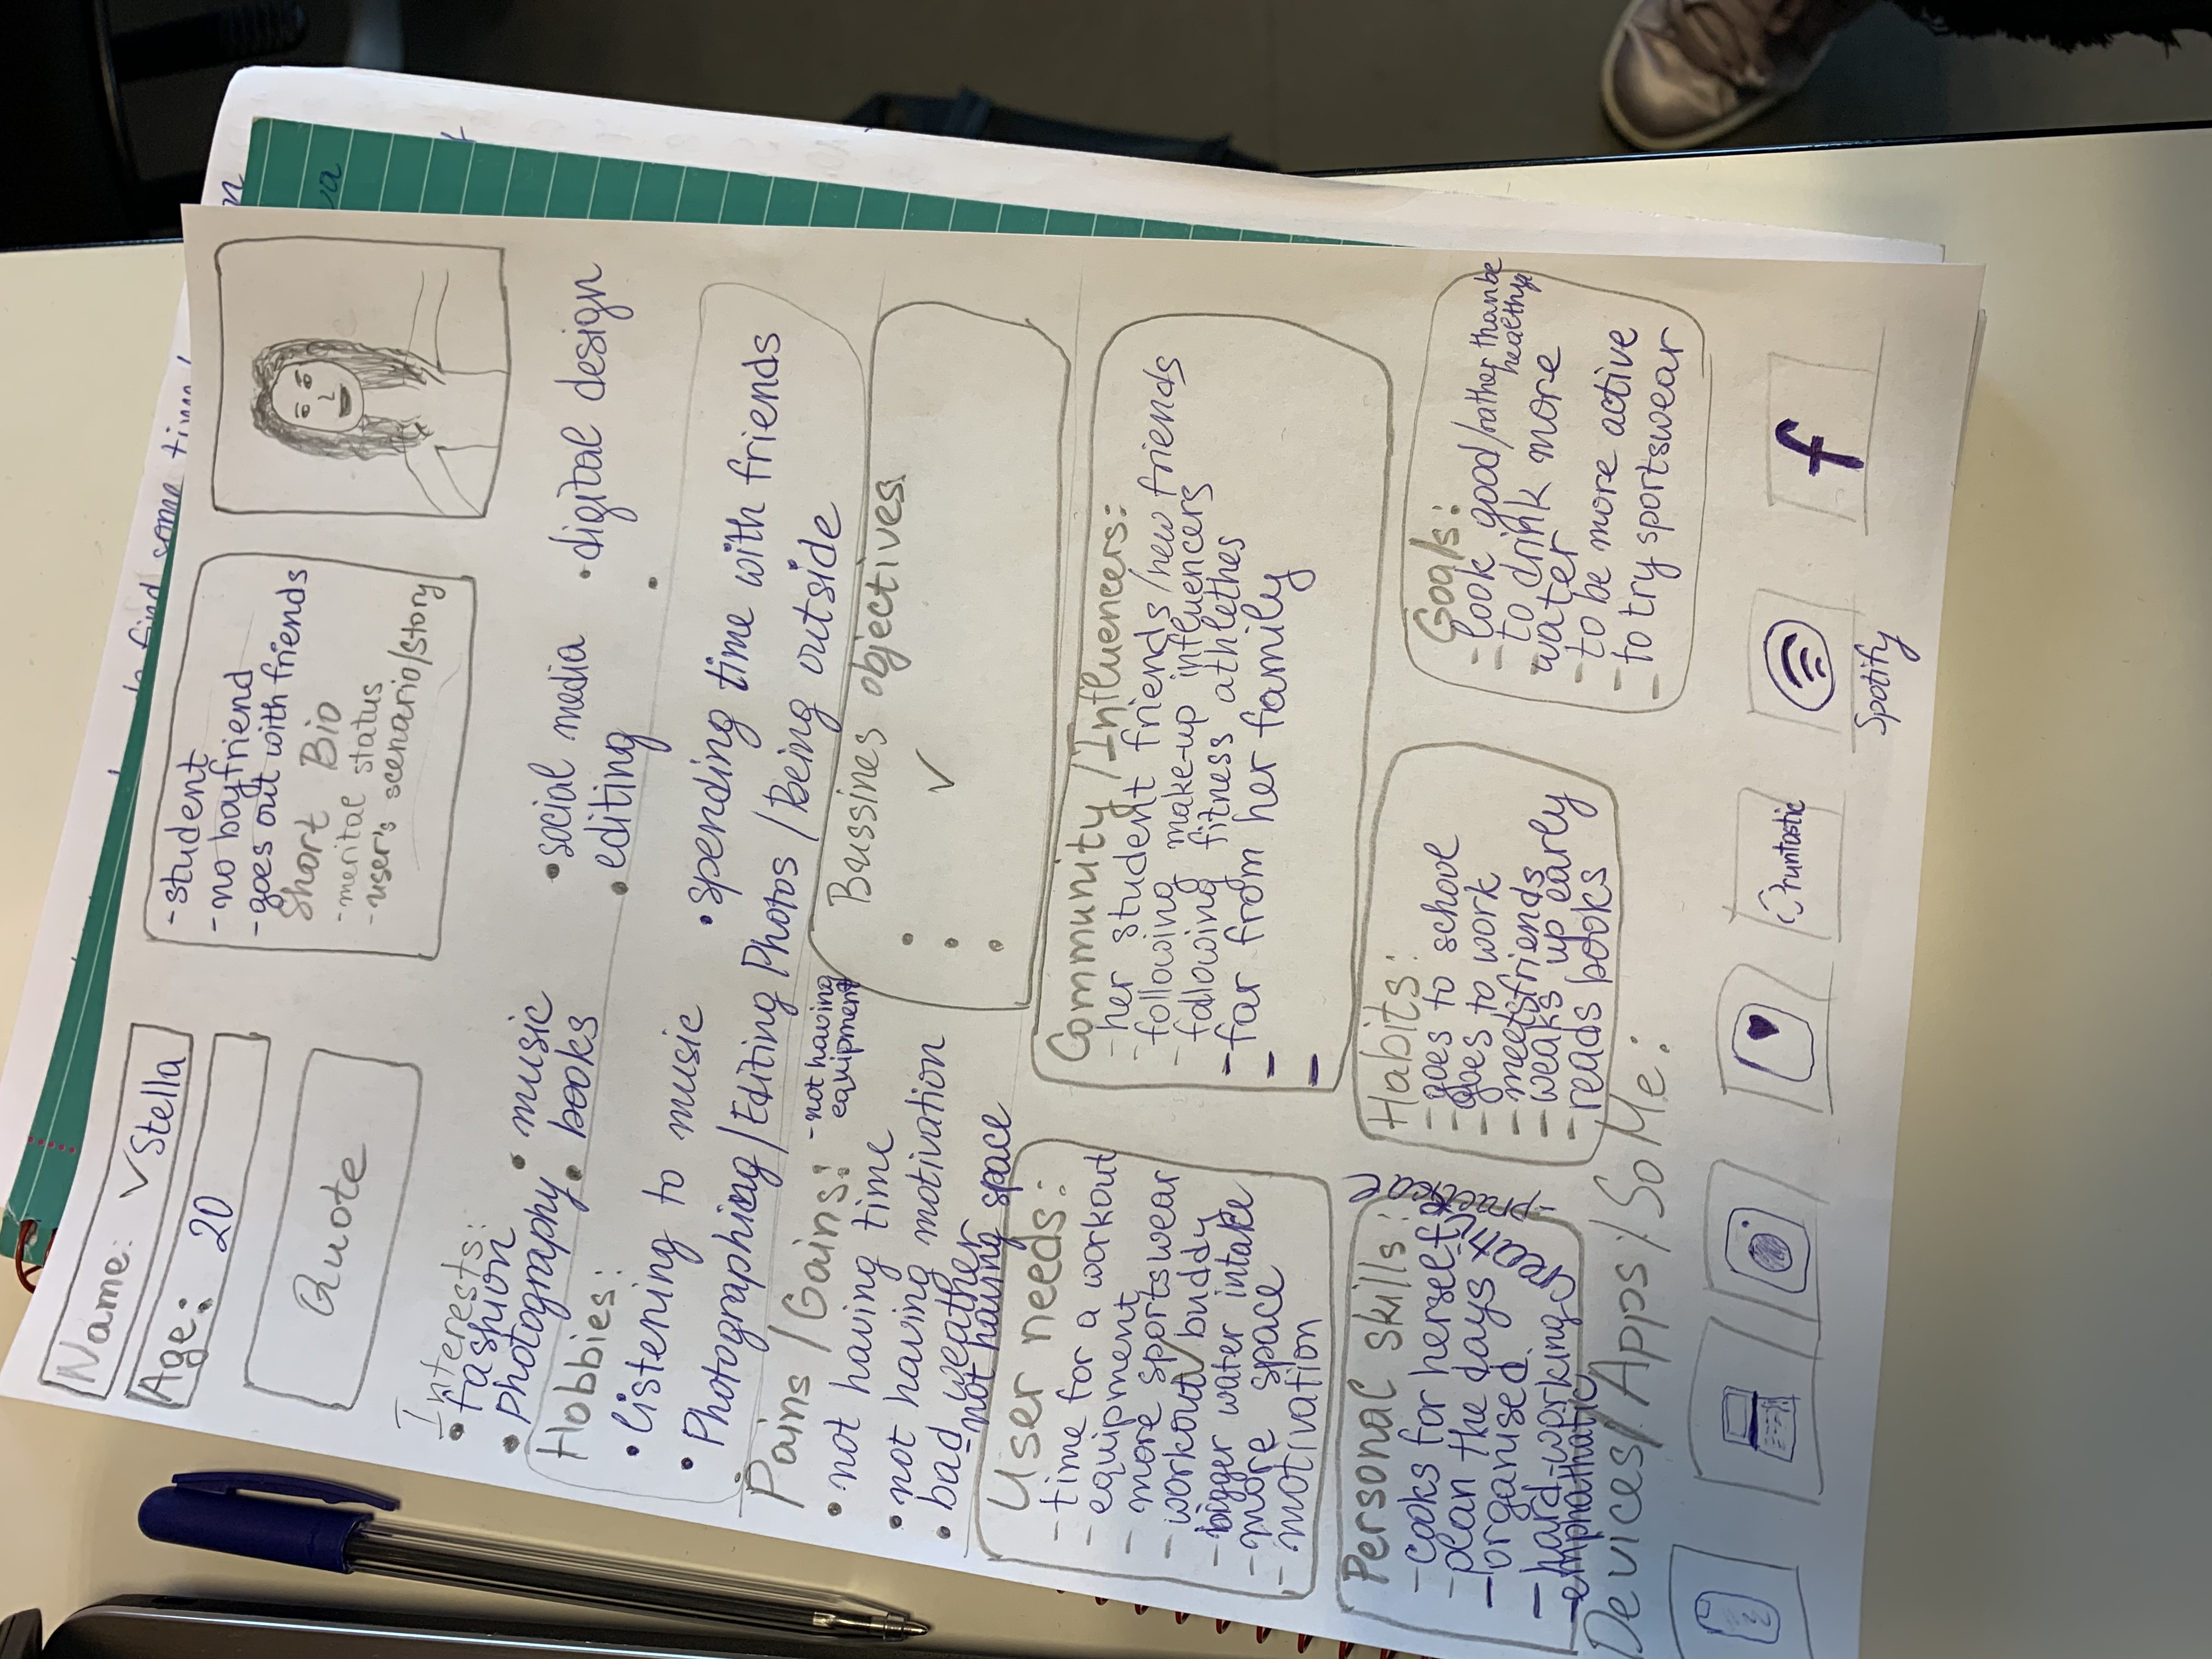 do find some time
Name: ✓ Stella
Age: 20
Quote
-student
-no boyfriend
-goes out with friends
Short Bio
-merital status
-user's scenario/story
Interests:
• fashion
• photography
• music
• books
• social media
• editing
• digital design
•
Hobbies:
• listening to music
• spending time with friends
• Photographing/Editing Photos/Being outside
Pains/Gains:
-not having
equipment
• not having time
• not having motivation
• bad weather
-not having space
Bussines objectives.
•
• ✓
•
User needs:
- time for a workout
- equipment
- more sportswear
- workout buddy
- bigger water intake
- more space
- motivation
Community/Influencers:
- her student friends/new friends
- following make-up influencers
- following fitness athlethes
- far from her family
-
-
Personal skills:
- cooks for herself
- plan the days
- organised
- hard-working
- emphathatic
creative
-practical
Habits:
- goes to school
- goes to work
- meets friends
- weaks up early
- reads books
Goals:
- look good/rather than be
healthy
- to drink more
water
- to be more active
- to try sportswear
Devices/Apps/SoMe:
runtastic
f
Spotify